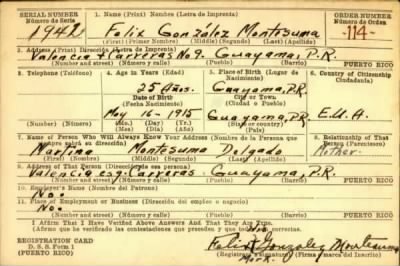 SERIAL NUMBER
Número de Serie
1. Name (Print) Nombre (Letra de Imprenta)
ORDER NUMBER
Número de Orden
1942
Felix González Montesuma
-114-
(First) (Primer Nombre) (Middle) (Segundo) (Last) (Apellido)
2. Address (Print) Dirección (Letra de Imprenta)
Valencia + Carreras No 9. Guayama, P.R.
PUERTO RICO
(Number and street) (Número y calle) (Town) (Pueblo) (Barrio) (Pueblo)
3. Telephone (Teléfono)
4. Age in Years (Edad)
5. Place of Birth (Lugar de Nacimiento)
6. Country of Citizenship
Ciudadanía)
25 Años.
Guayama, P.R.
Date of Birth
(Fecha Nacimiento)
City or Town
(Ciudad o Pueblo)
May 16-1915
Guayama, P.R.
E.U.A.
(Mo.) (Day) (Yr.)
(Mes) (Día) (Año)
(State or country)
(País)
7. Name of Person Who Will Always Know Your Address (Nombre de la Persona que siempre sabrá su dirección)
8. Relationship of That Person (Parentesco)
Martina Montesuma Delgado
Mother
(First) (Nombre) (Middle) (Segundo) (Last) (Apellido)
9. Address of That Person (Dirección de esa persona)
Valencia esq. Carreras. Guayama, P.R.
PUERTO RICO
(Number and street) (Número y calle) (Barrio) (Pueblo)
10. Employer's Name (Nombre del Patrono)
No.
11. Place of Employment or Business (Dirección del empleo o negocio)
No.
PUERTO RICO
(Number and street) (Número y calle) (Barrio) (Pueblo)
I Affirm That I Have Verified Above Answers And That They Are True.
(Afirmo que he verificado las contestaciones que preceden y que son
REGISTRATION CARD
D. S. S. Form 1
(PUERTO RICO)
Felix González Montesuma
Registrant's signature) (Firma o marca del Inscrito)
Mark.